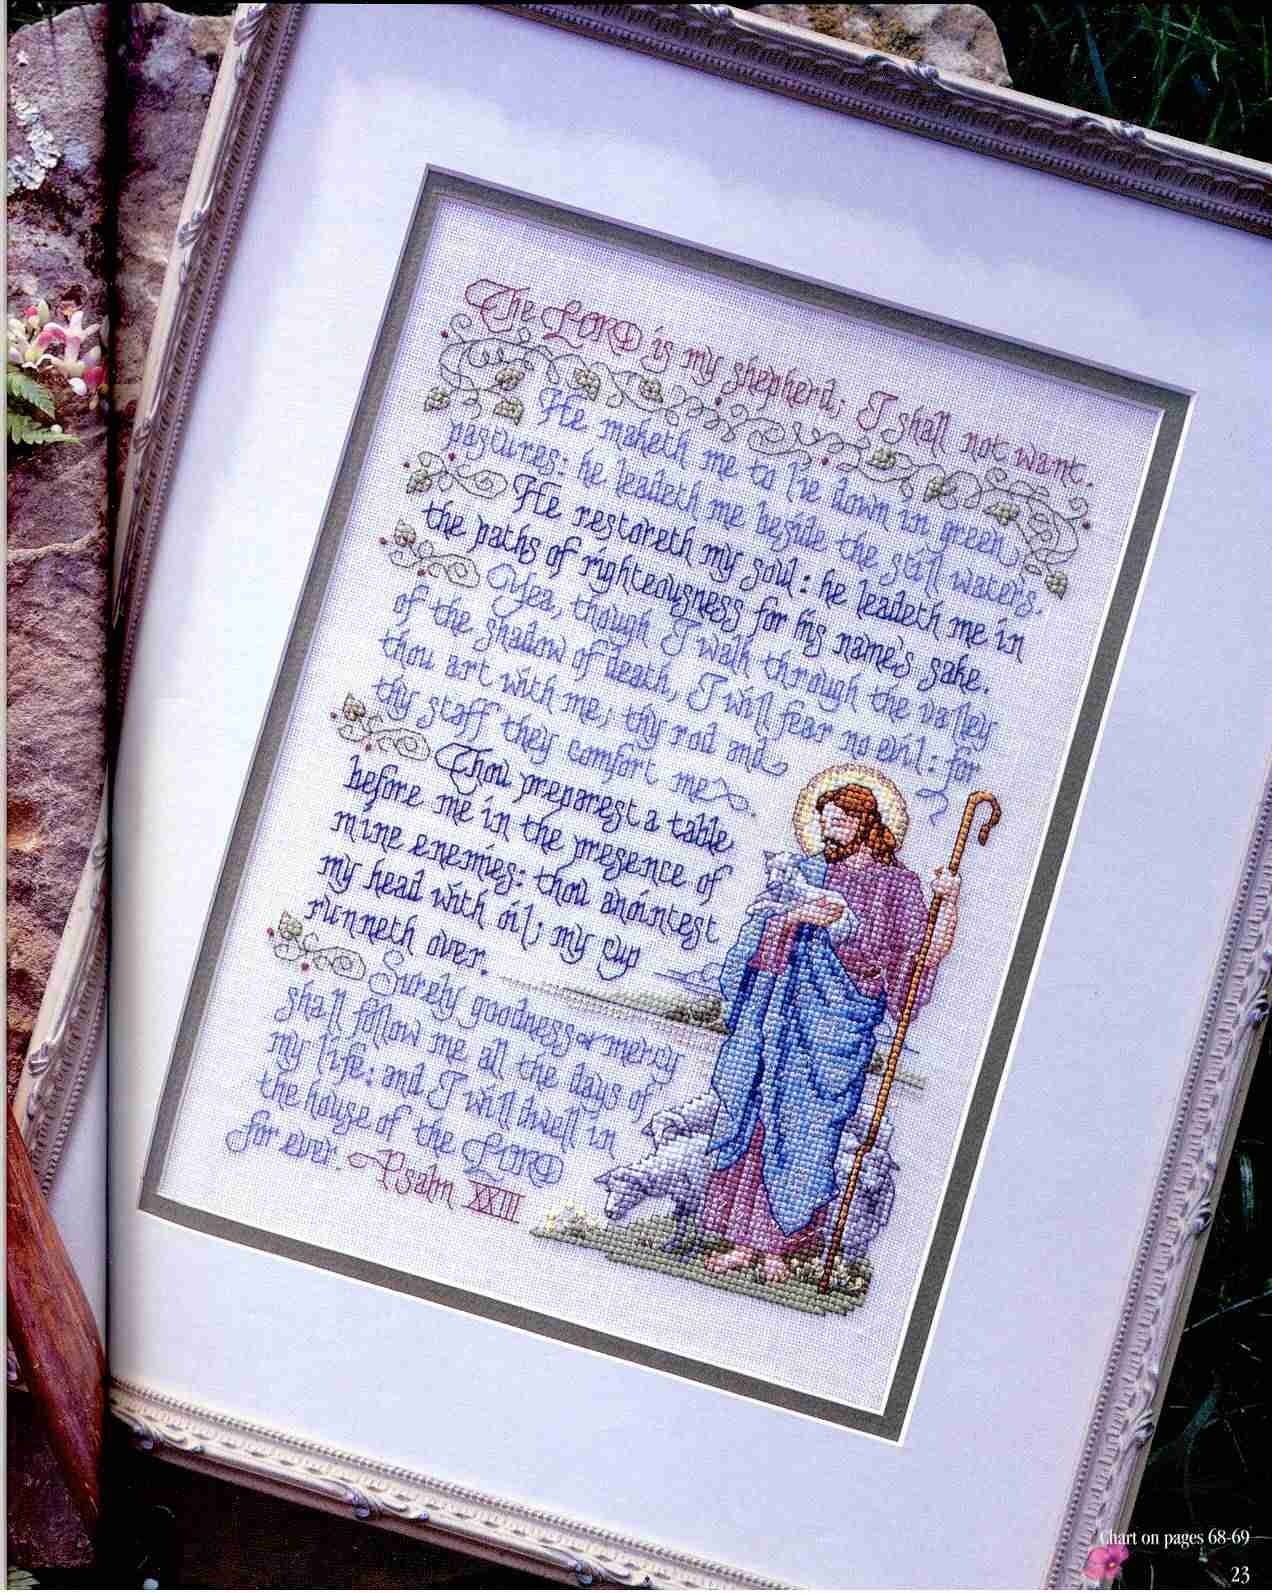 The LORD is my shepherd; I shall not want.
He maketh me to lie down in green
pastures: he leadeth me beside the still waters.
He restoreth my soul: he leadeth me in
the paths of righteousness for his name's sake.
Yea, though I walk through the valley
of the shadow of death, I will fear no evil: for
thou art with me; thy rod and
thy staff they comfort me.
Thou preparest a table
before me in the presence of
mine enemies: thou anointest
my head with oil; my cup
runneth over.
Surely goodness & mercy
shall follow me all the days of
my life: and I will dwell in
the house of the LORD
for ever. Psalm XXIII
Chart on pages 68-69
23